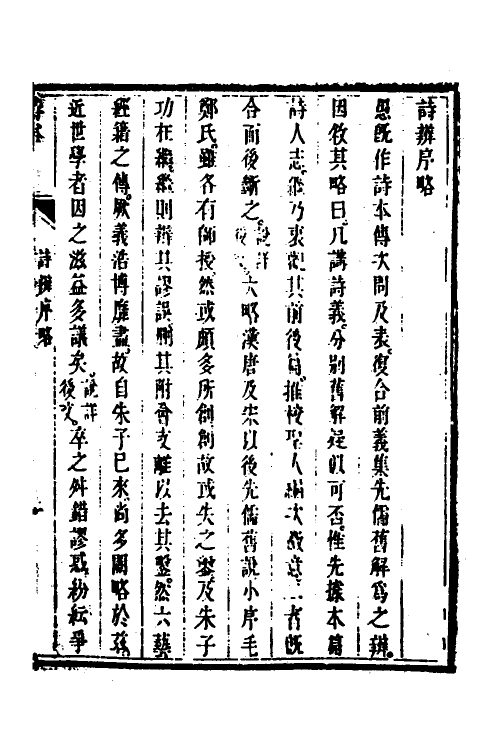 詩辨序略
愚既作詩本傳次問及表復合前義集先儒舊解爲之辨
因敘其略曰凡講詩義分別舊解疑似可否惟先據本篇
詩人志乃衷其前後推校聖人次意二者既
合而後斷之說詳後大略漢唐及宋以後先儒舊說小序毛
鄭氏雖各有師授然或頗多所創創故或失之及朱子
功在則辨其謬誤刪其附會支離以去其鑿然六藝
經籍之傳厥義浩博靡盡故自朱子已來尚多闕略於茲
近世學者因之滋益多議矣說詳後卒之舛錯謬紛紜爭
詩辨序略